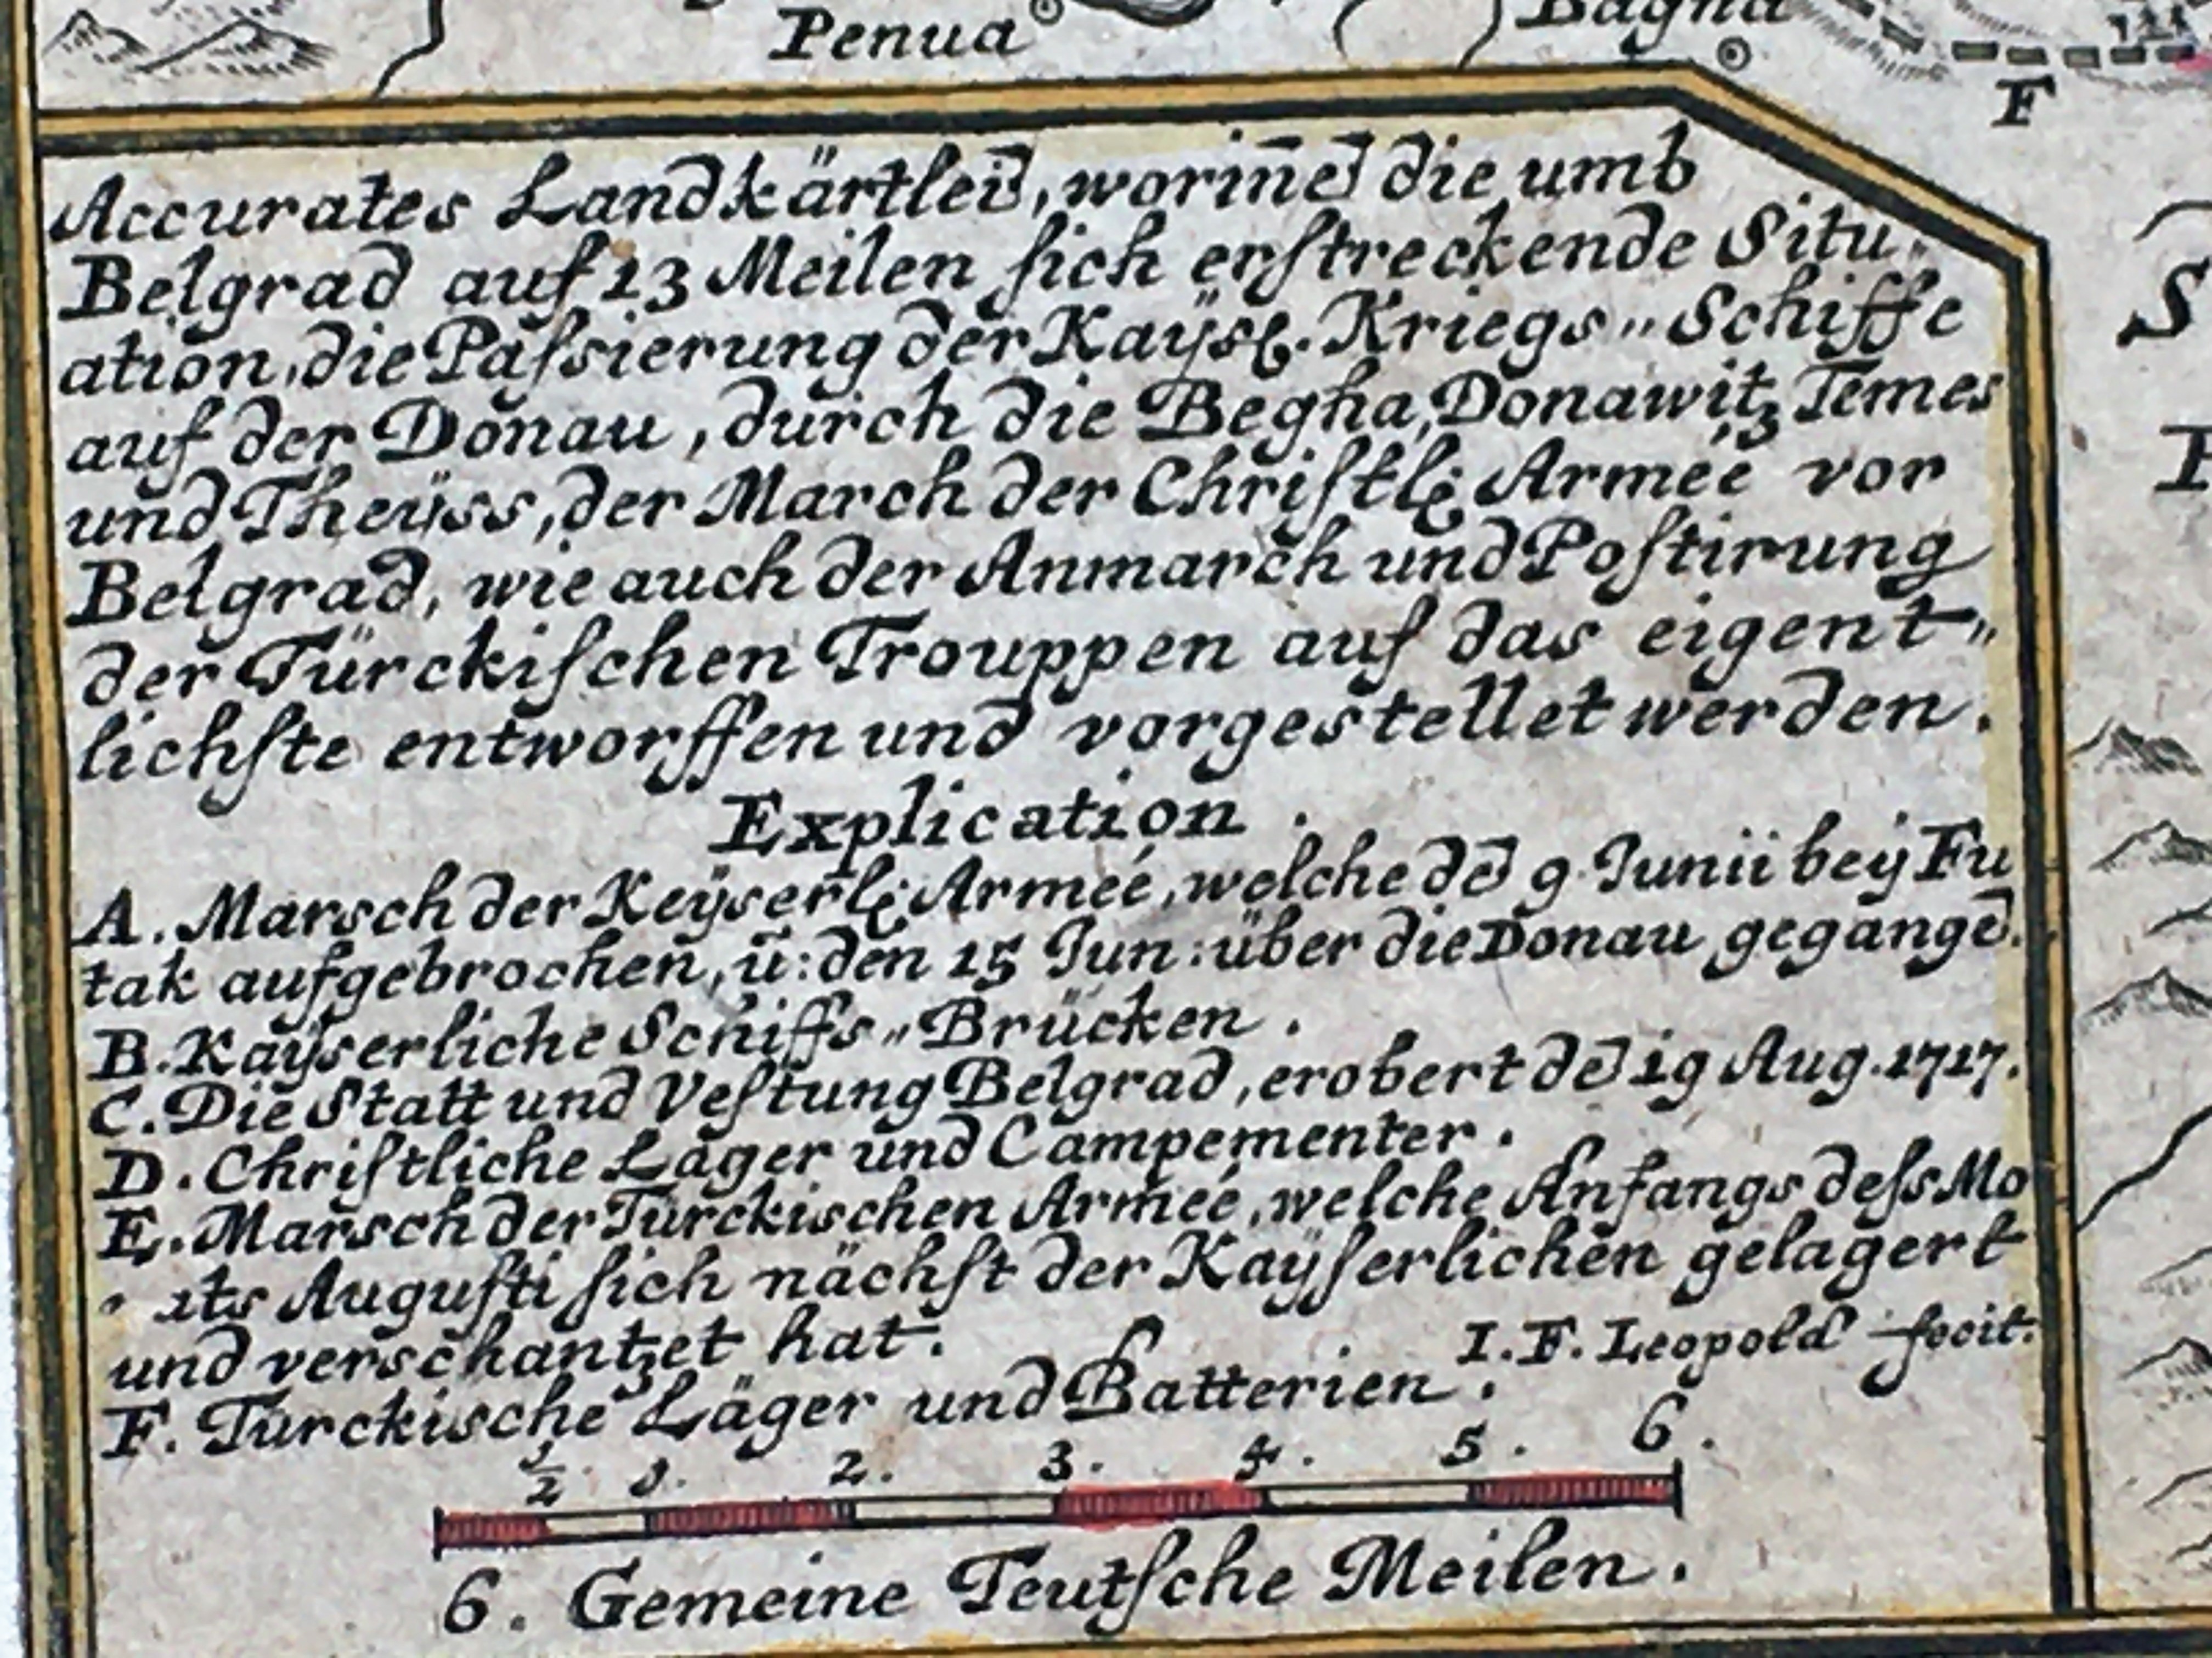 Penua
F
Accurates Landkärtlein̄, worin̄en̄ die umb
Belgrad auf 13 Meilen ſich erſtreckende Situ„
ation, die Paſsierung der Kaÿsl. Kriegs„Schiffe
auf der Donau, durch die Begha, Donawitz, Temes
und Theÿss, der March der Chriſtl: Armeé vor
Belgrad, wie auch der Anmarch und Poſtirung
der Türckiſchen Trouppen auf das eigent„
lichſte entworffen und vorgestellet werden.
Explication.
A. Marsch der Keÿserl: Armeé, welche dē 9 Junii beÿ Fu
tak aufgebrochen, ū: den 15 Jun: über die Donau gegangē.
B. Kaÿserliche Schiffs„Brücken.
C. Die Statt und Veſtung Belgrad, erobert dē 19 Aug. 1717.
D. Chriſtliche Läger und Campementer.
E. Marsch der Türckischen Armeé, welche Anfangs deſs Mo
ats Auguſti ſich nächſt der Kaÿſerlichen gelagert
und verschantzet hat.
I. F. Leopold fecit.
F. Türckische Läger und Batterien.
½ 1. 2. 3. 4. 5. 6.
6. Gemeine Teutſche Meilen.